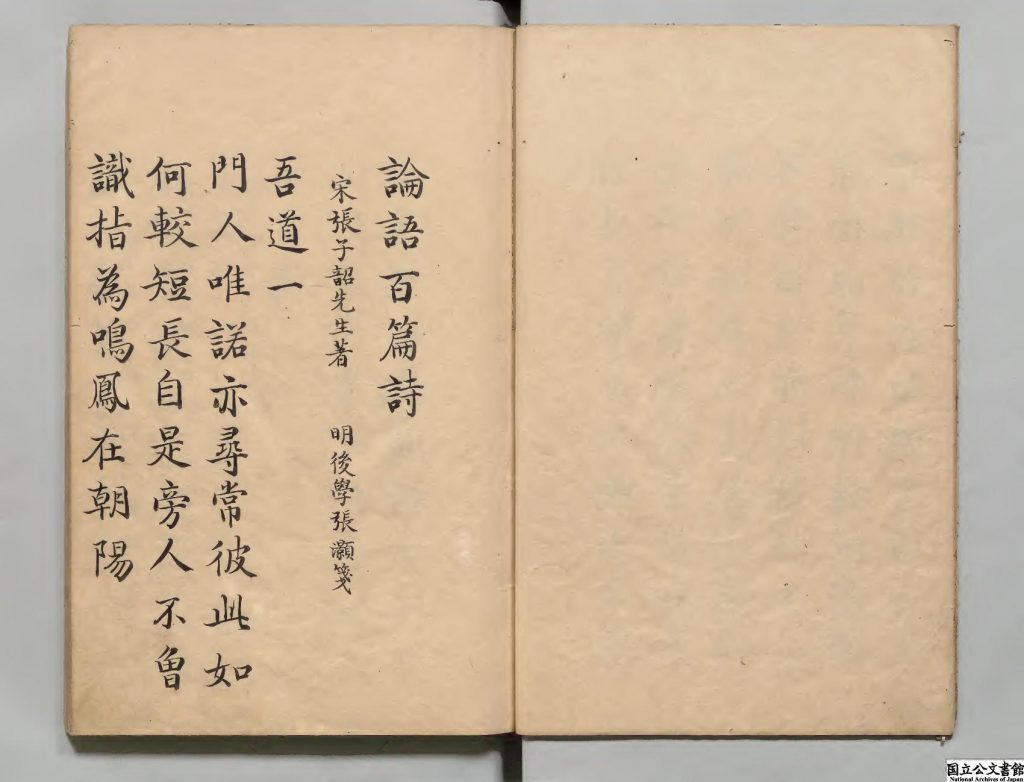 論語百篇詩
宋張子韶先生著　明後學張灝箋
吾道一
門人唯諾亦尋常彼此如
何較短長自是旁人不曾
識指為鳴鳳在朝陽
国立公文書館
National Archives of Japan